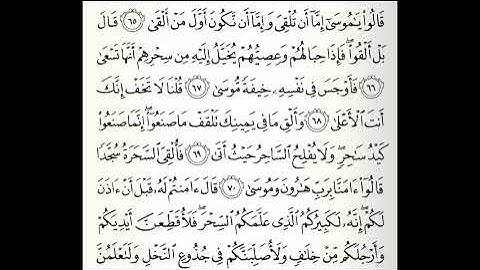 قَالُوا۟ يَـٰمُوسَىٰٓ إِمَّآ أَن تُلْقِىَ وَإِمَّآ أَن نَّكُونَ أَوَّلَ مَنْ أَلْقَىٰ ٦٥ قَالَ
بَلْ أَلْقُوا۟ ۖ فَإِذَا حِبَالُهُمْ وَعِصِيُّهُمْ يُخَيَّلُ إِلَيْهِ مِن سِحْرِهِمْ أَنَّهَا تَسْعَىٰ
٦٦ فَأَوْجَسَ فِى نَفْسِهِۦ خِيفَةً مُّوسَىٰ ٦٧ قُلْنَا لَا تَخَفْ إِنَّكَ
أَنتَ ٱلْأَعْلَىٰ ٦٨ وَأَلْقِ مَا فِى يَمِينِكَ تَلْقَفْ مَا صَنَعُوٓا۟ ۖ إِنَّمَا صَنَعُوا۟
كَيْدُ سَـٰحِرٍ ۖ وَلَا يُفْلِحُ ٱلسَّاحِرُ حَيْثُ أَتَىٰ ٦٩ فَأُلْقِىَ ٱلسَّحَرَةُ سُجَّدًا
قَالُوٓا۟ ءَامَنَّا بِرَبِّ هَـٰرُونَ وَمُوسَىٰ ٧٠ قَالَ ءَامَنتُمْ لَهُۥ قَبْلَ أَنْ ءَاذَنَ
لَكُمْ ۖ إِنَّهُۥ لَكَبِيرُكُمُ ٱلَّذِى عَلَّمَكُمُ ٱلسِّحْرَ ۖ فَلَأُقَطِّعَنَّ أَيْدِيَكُمْ
وَأَرْجُلَكُم مِّنْ خِلَـٰفٍ وَلَأُصَلِّبَنَّكُمْ فِى جُذُوعِ ٱلنَّخْلِ وَلَتَعْلَمُنَّ